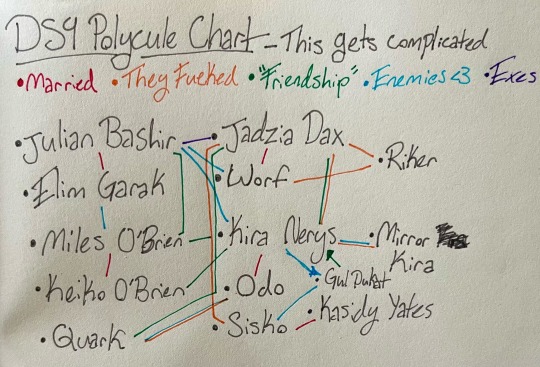 DS9 Polycule Chart - This gets complicated
•Married •They Fucked •"Friendship" •Enemies <3 •Exes
•Julian Bashir •Jadzia Dax
•Riker
•Elim Garak •Worf
•Miles O'Brien •Kira Nerys •Mirror Kira
•Keiko O'Brien •Odo •Gul Dukat
•Quark •Sisko •Kasidy Yates